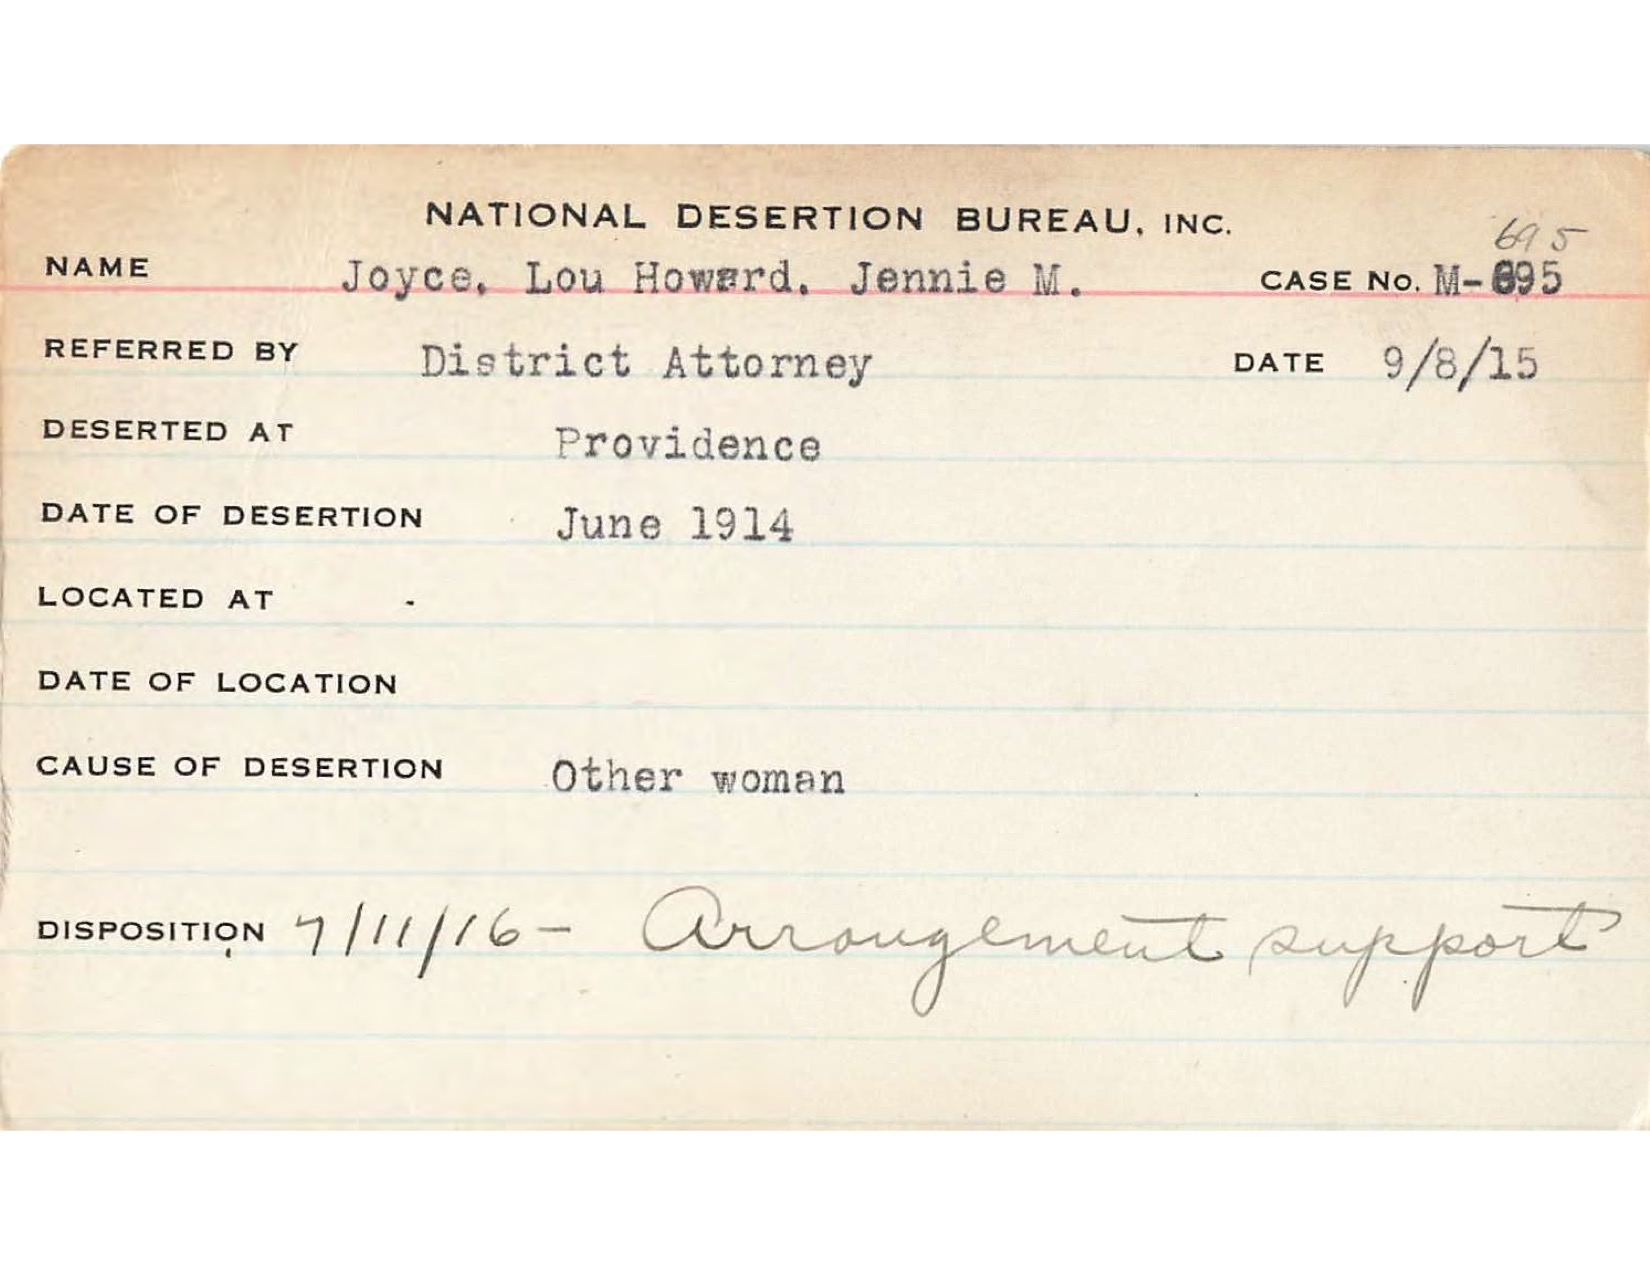 NATIONAL DESERTION BUREAU, INC.
695
NAME Joyce, Lou Howard, Jennie M. CASE No. M-695
REFERRED BY District Attorney DATE 9/8/15
DESERTED AT Providence
DATE OF DESERTION June 1914
LOCATED AT -
DATE OF LOCATION
CAUSE OF DESERTION Other woman
DISPOSITION 7/11/16 - Arrangement support